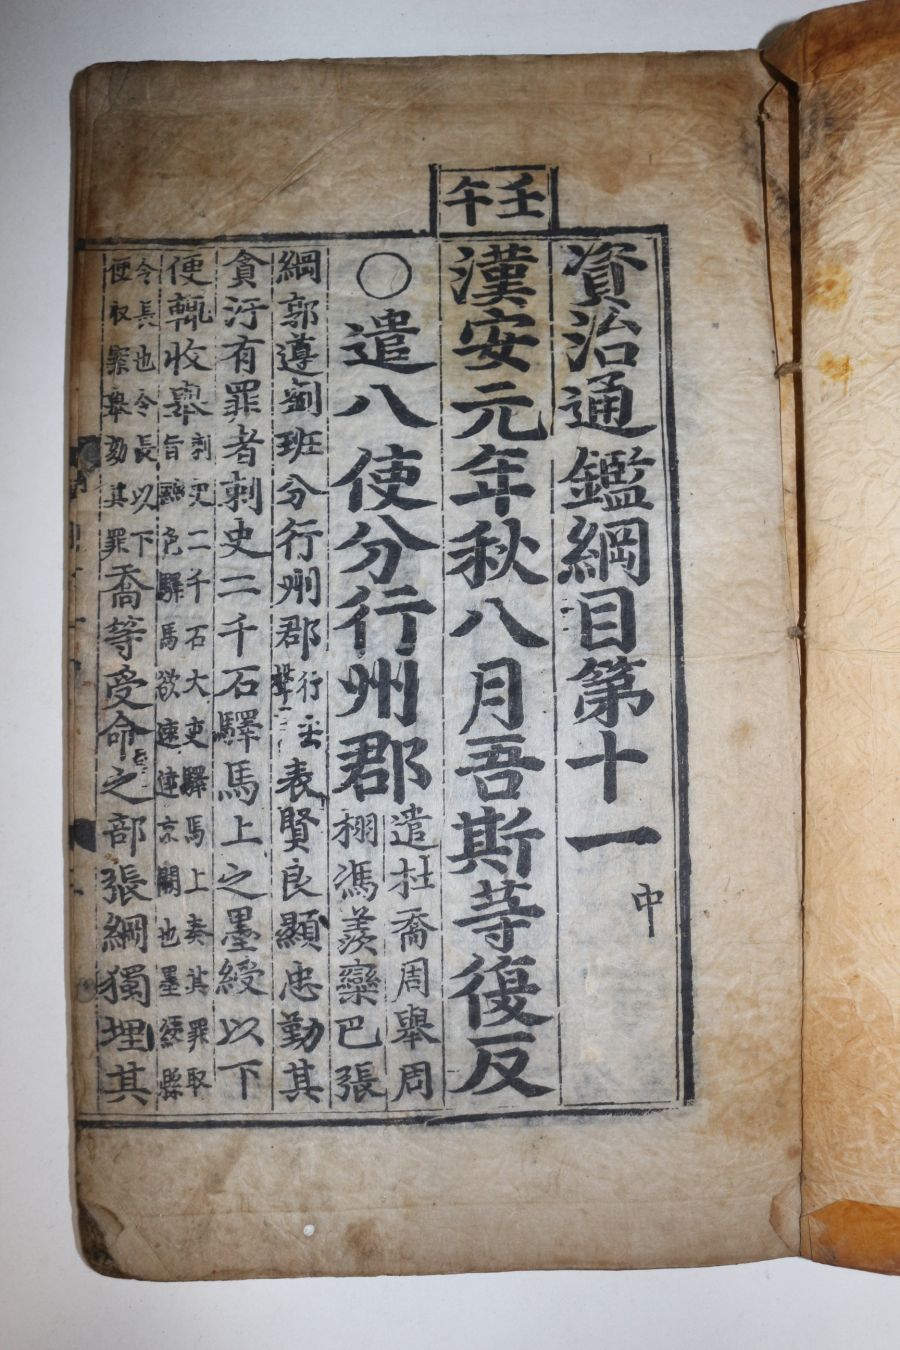 資治通鑑綱目第十一 中
壬午
漢安元年秋八月吾斯等復反
○遣八使分行州郡
遣杜喬周舉周
栩馮羨欒巴張
綱郭遵劉班分行州郡 表賢良顯忠勤其
貪汙有罪者刺史二千石驛馬上之墨綬以下
便輒收舉
刺史二千石大吏驛馬上奏其罪取
旨 驛馬欲速達京闕也墨綬縣
令長也令長以下
便收案舉劾其罪
喬等受命之部張綱獨埋其